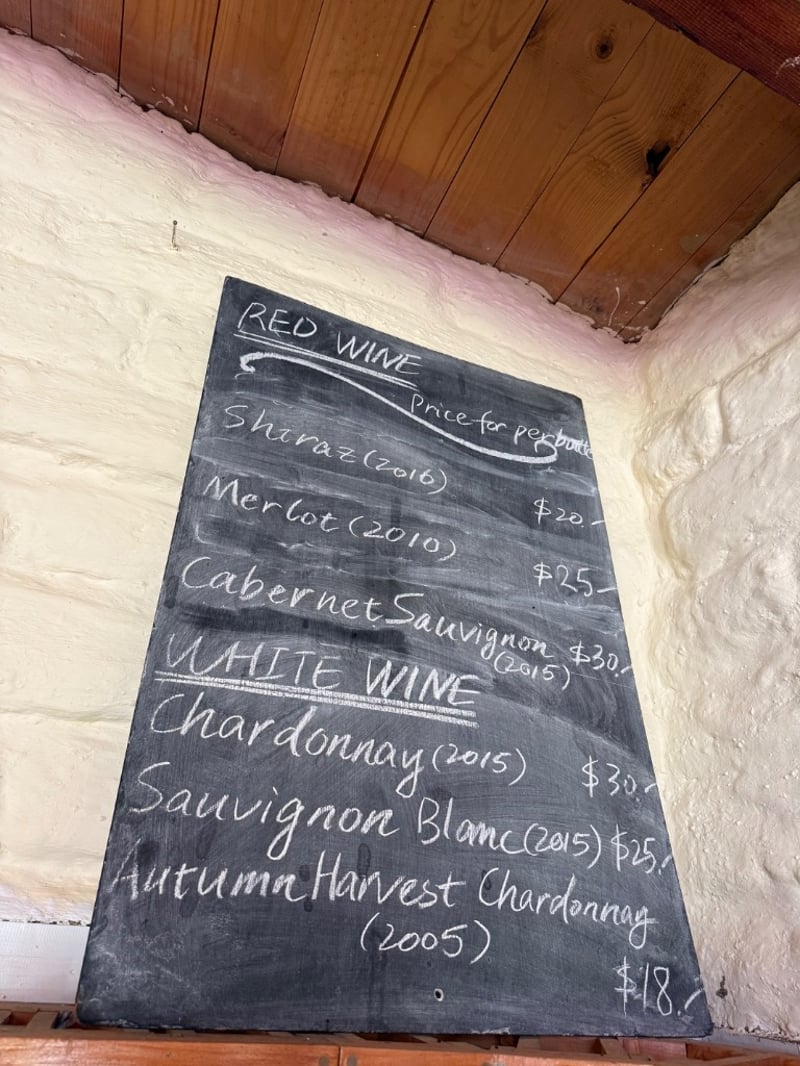 RED WINE
Price for per bottle
Shiraz (2016) $20.-
Merlot (2010) $25-
Cabernet Sauvignon (2015) $30.-
WHITE WINE
Chardonnay (2015) $30.-
Sauvignon Blanc (2015) $25.-
Autumn Harvest Chardonnay
(2005)
$18.-